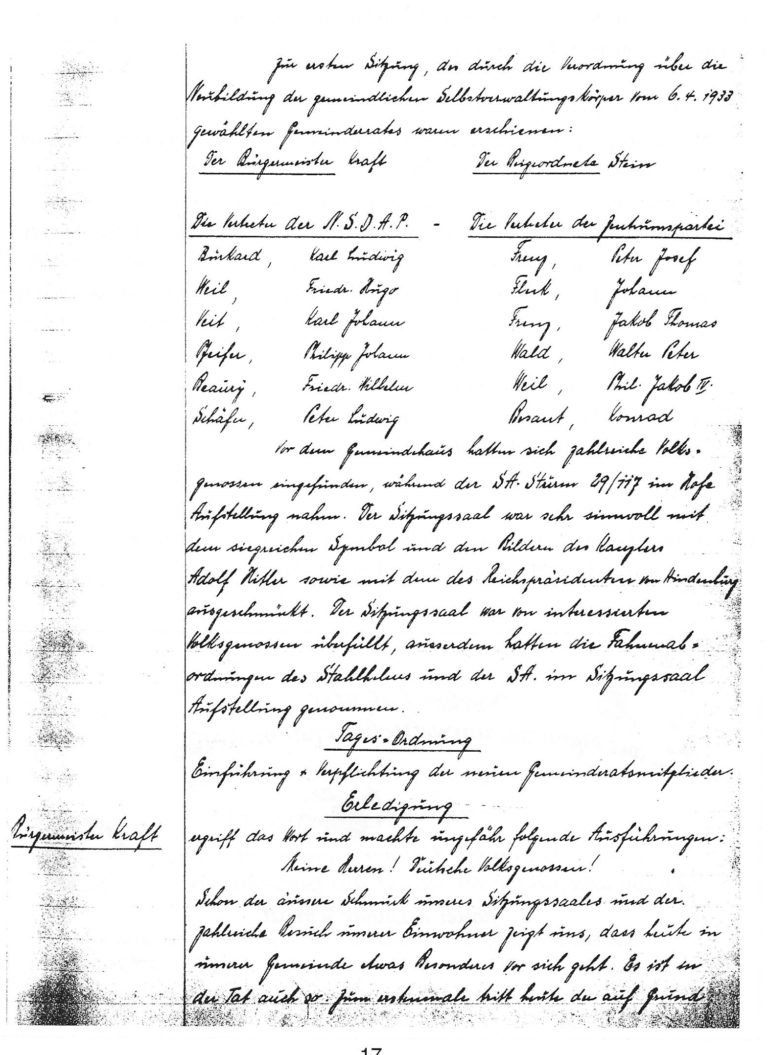 Zur ersten Sitzung, des durch die Verordnung über die
Neubildung der gemeindlichen Selbstverwaltungskörper vom 6.4.1933
gewählten Gemeinderates waren erschienen:
Der Bürgermeister Kraft Der Beigeordnete Stein
Die Vertreter der N.S.D.A.P. - Die Vertreter der Zentrumspartei
Burkard, Karl Ludwig Frenz, Peter Josef
Weil, Friedr. Hugo Fluk, Johann
Veit, Karl Johann Frenz, Jakob Thomas
Pfeifer, Philipp Johann Wald, Walter Peter
Beaury, Friedr. Wilhelm Weil, Phil. Jakob IV.
Schäfer, Peter Ludwig Besant, Konrad
Vor dem Gemeindehaus hatten sich zahlreiche Volks-
genossen eingefunden, während der SA. Sturm 29/117 im Hofe
Aufstellung nahm. Der Sitzungssaal war sehr sinnvoll mit
dem siegreichen Symbol und den Bildern des Kanzlers
Adolf Hitler sowie mit dem des Reichspräsidenten von Hindenburg
ausgeschmückt. Der Sitzungssaal war von interessierten
Volksgenossen überfüllt, ausserdem hatten die Fahnenab-
ordnungen des Stahlhelms und der SA. im Sitzungssaal
Aufstellung genommen.
Tages-Ordnung
Einführung + Verpflichtung der neuen Gemeinderatsmitglieder.
Erledigung
Bürgermeister Kraft ergriff das Wort und machte ungefähr folgende Ausführungen:
Meine Herren! Deutsche Volksgenossen!
Schon der äussere Schmuck unseres Sitzungssaales und der
zahlreiche Besuch unserer Einwohner zeigt uns, dass heute in
unserer Gemeinde etwas Besonderes vor sich geht. Es ist in
der Tat auch so. Zum erstenmale tritt heute der auf Grund
17